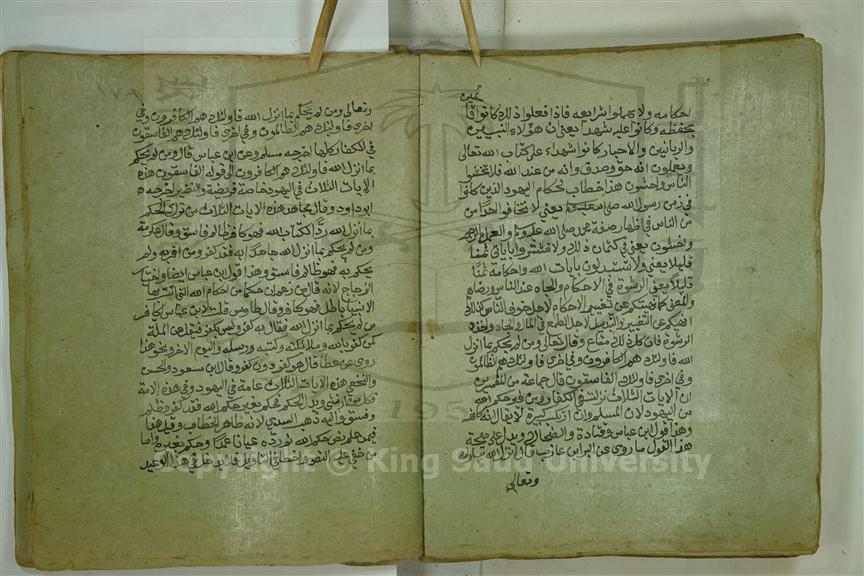 احكامه ولا يهملوا شرايعه فاذا فعلوا ذلك كانوا قا
ئمين
بحفظه وكانوا عليه شهدا يعني ان هؤلاء النبيين
والربانيين والاحبار كانوا شهداء على كتاب الله تعالى
ويعلمون انه حق وصدق وانه من عند الله فلا تخشوا
الناس واخشون هذا خطاب لحكام اليهود الذين كانوا
في زمن رسول الله صلى عليه يعني لا تخافوا احدا من
من الناس في اظهار صفة محمد صلى الله عليه والعمل بالرجم
واخشون يعني في كتمان ذلك ولا تشتروا باياتي ثمنا
قليلا يعني ولا تستبدلون بايات الله واحكامه ثمنا
قليلا يعني الرشوة في الاحكام والجاه عند الناس ورضاهم
والمعنى كما نهيتكم عن تغيير الاحكام لاجل خوف الناس كذلك
انهيكم عن التغيير والتبديل لاجل الطمع في المال والجاه واخذ
الرشوة فان كل ذلك متاع وقال تعالى ومن لم يحكم بما انزل
الله فاولئك هم الكافرون وفي اخرى فاولئك هم الظالمون
وفي اخرى فاولئك الفاسقون قال جماعة من المفسرين
ان الايات الثلاث نزلت في الكفار ومن غير حكم الله
من اليهود لان المسلم وان ارتكب كبيرة لا يقال انه كافر
وهذا قول ابن عباس وقتادة والضحاك ويدل على صحة
هذا القول ما روي عن البراء بن عازب قال انزل الله تبارك
وتعالى
١٧٩
وتعالى ومن لم يحكم بما انزل الله فاولئك هم الكافرون وفي
اخرى فاولئك هم الظالمون وفي اخرى فاولئك هم الفاسقون
في الكفار كلها اخرجه مسلم وعن ابن عباس قال ومن لم يحكم
بما انزل الله فاولئك هم الكافرون الى قوله الفاسقون هذه
الايات الثلاث في اليهود خاصة قريضة والنضير اخرجه
ابو داود وقال مجاهد هذه الايات الثلاث من ترك الحكم
بما انزل الله ردا لكتاب الله فهو كافر ظالم فاسق وقال عكرمة
ومن لم يحكم بما انزل الله جاحدا به فقد كفر ومن اقر به ولم
يحكم به فهو ظالم فاسق وهذا قول ابن عباس ايضا واختيار
الزجاج لانه قال من زعم ان حكما من احكام الله التي اتت بها
الانبيا باطل فهو كافر وقال طاوس قلت لابن عباس كافر
من لم يحكم بما انزل الله فقال به كفر وليس بكفر ينقل عن الملة
كمن كفر بالله وملائكته وكتبه ورسله واليوم الاخر ونحو هذا
روي عن عطا قال هو كفر دون كفر وقال ابن مسعود والحسن
والنخعي هذه الايات الثلاث عامة في اليهود وفي هذه الامة
فكل من ارتشى وبدل الحكم فحكم بغير حكم الله فقد كفر وظلم
وفسق واليه ذهب السدي لانه ظاهر الخطاب وقيل هذا
فيمن علم نص حكم الله ثم رده عيانا عمدا وحكم بغيره واما
من خفي عليه النص او اخطا في التاويل فلا يدخل في هذا الوعيد
1957
Copyright © King Saud University